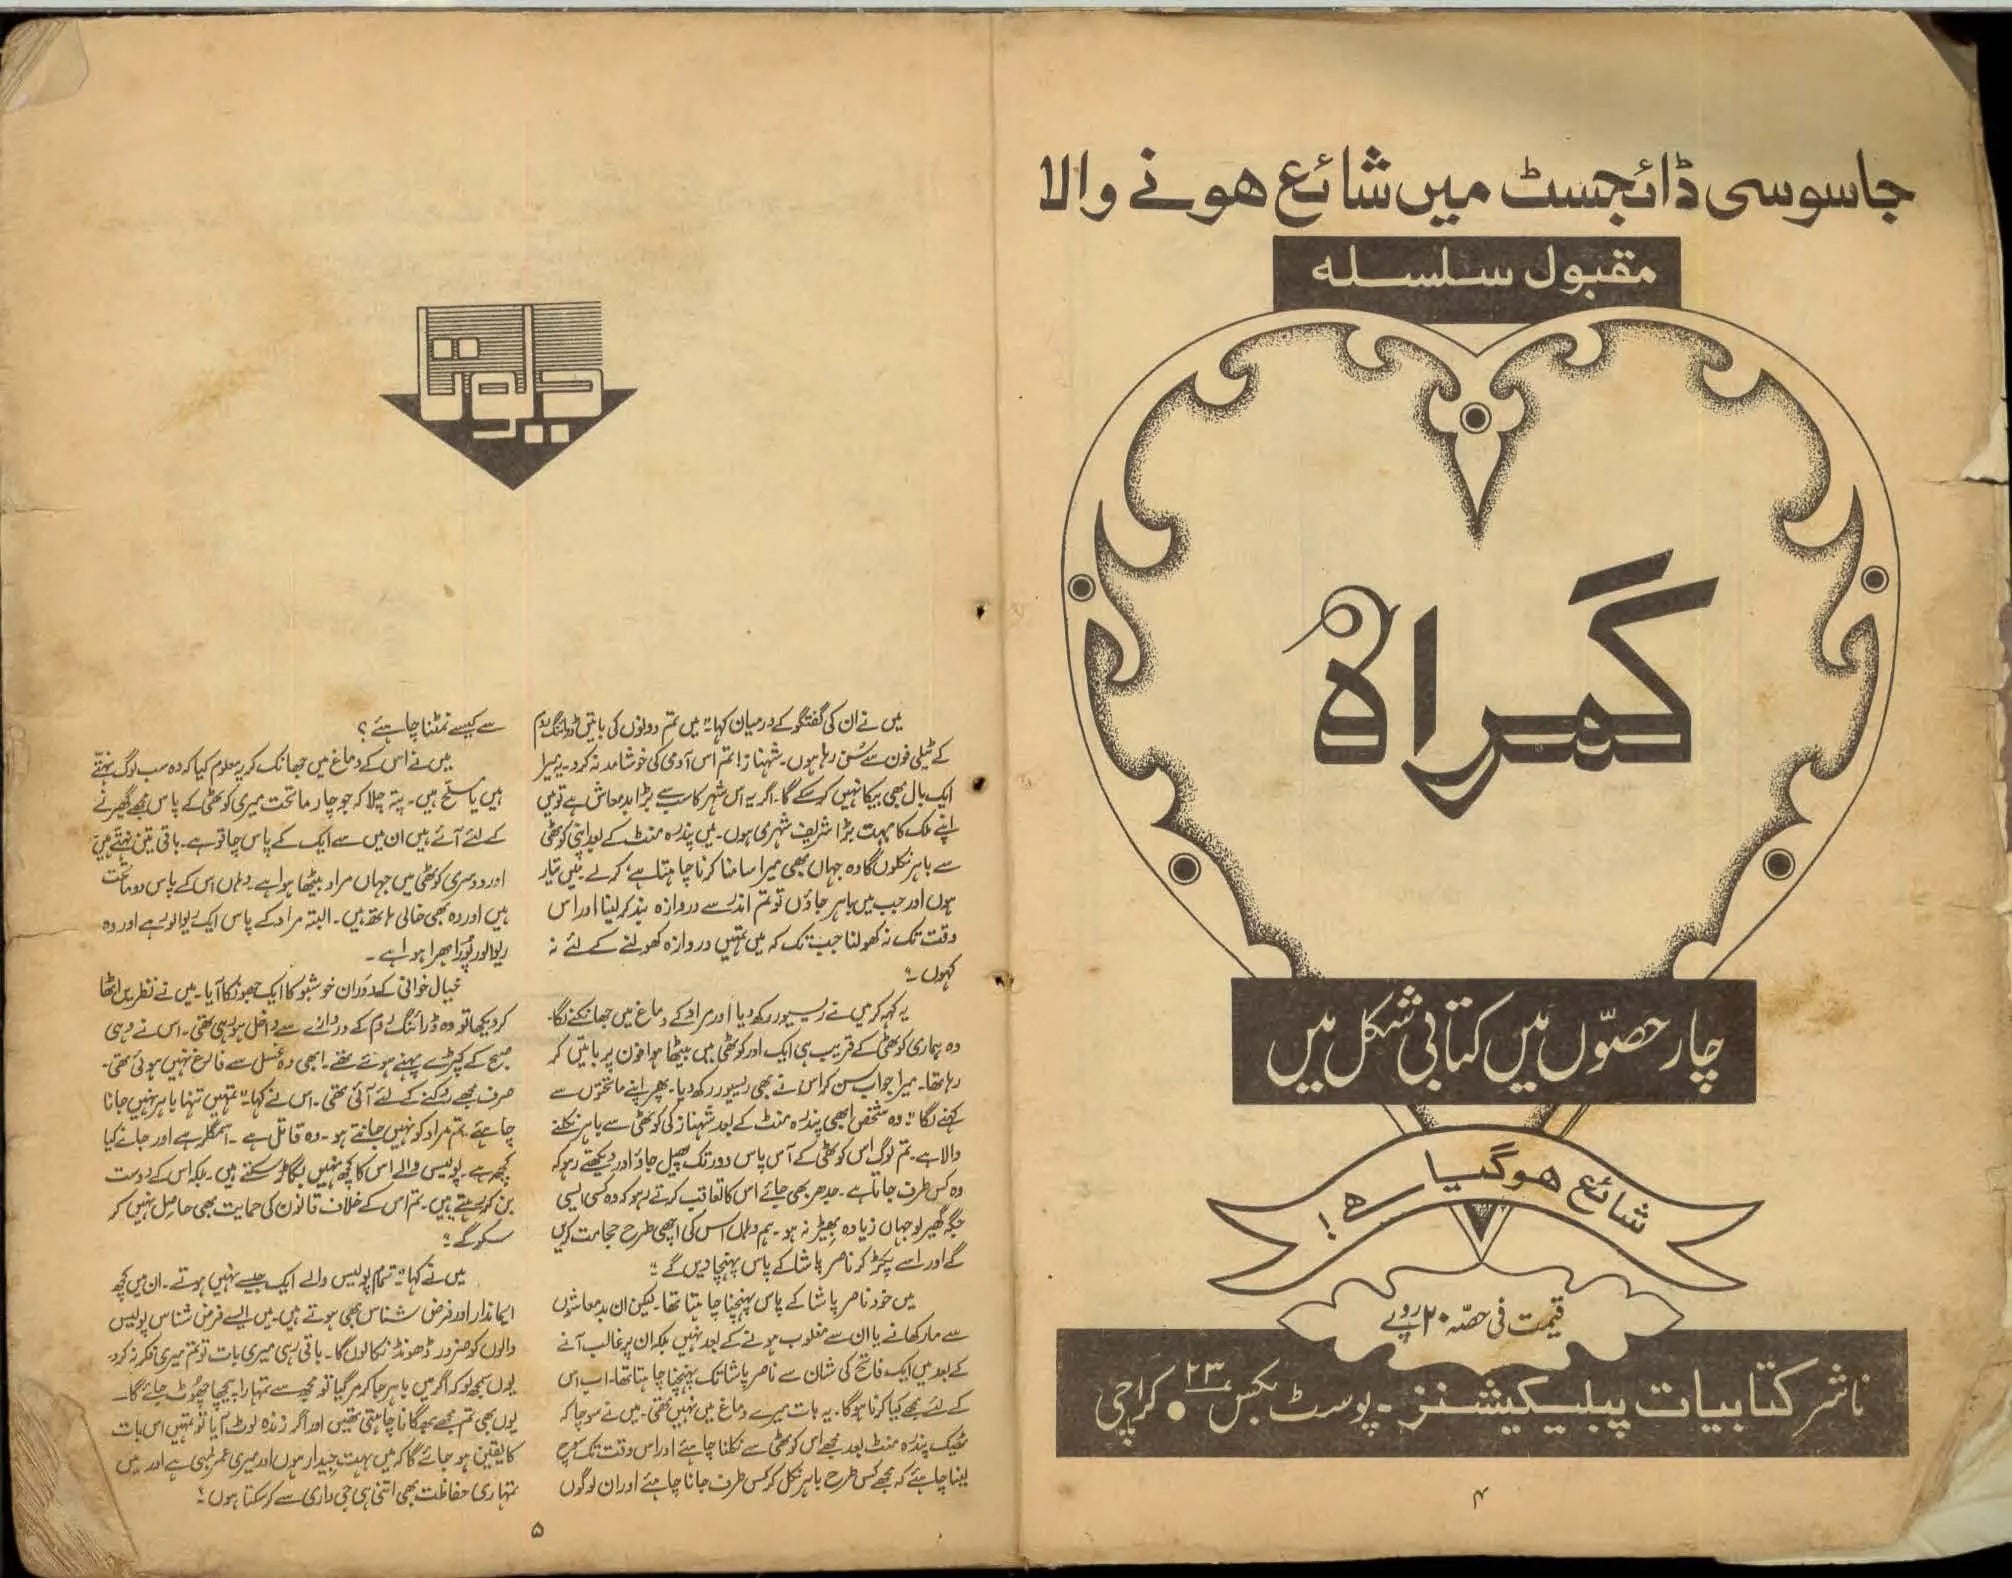 جاسوسی ڈائجسٹ میں شائع ہونے والا
مقبول سلسلہ
گمراہ
چار حصّوں میں کتابی شکل میں
شائع ہوگیا ہے!
قیمت فی حصّہ ۲۰ روپے
ناشر کتابیات پبلیکیشنز ۔ پوسٹ بکس ۲۳ ● کراچی
۴
دیوتا
میں نے ان کی گفتگو کے درمیان کہا "میں تم دونوں کی باتیں ڈرائنگ روم
کے ٹیلی فون سے سُن رہا ہوں۔ شہناز! تم اس آدمی کی خوشامد نہ کرو۔ یہ میرا
ایک بال بھی بیکا نہیں کر سکے گا۔ اگر یہ اس شہر کا سب سے بڑا بدمعاش ہے تو میں
اپنے ملک کا بہت بڑا شریف شہری ہوں۔ میں پندرہ منٹ کے بعد اپنی کوٹھی
سے باہر نکلوں گا وہ جہاں بھی میرا سامنا کرنا چاہتا ہے کر لے میں تیار
ہوں اور جب میں باہر جاؤں تو تم اندر سے دروازہ بند کر لینا اور اس
وقت تک نہ کھولنا جب تک کہ میں تمہیں دروازہ کھولنے کے لئے نہ
کہوں"
یہ کہہ کر میں نے ریسیور رکھ دیا اور مراد کے دماغ میں جھانکنے لگا۔
وہ ہماری کوٹھی کے قریب ہی ایک اور کوٹھی میں بیٹھا ہوا فون پر باتیں کر
رہا تھا۔ میرا جواب سن کر اس نے بھی ریسیور رکھ دیا۔ پھر اپنے ماتحتوں سے
کہنے لگا "وہ شخص ابھی پندرہ منٹ کے بعد شہناز کی کوٹھی سے باہر نکلنے
والا ہے۔ تم لوگ اس کوٹھی کے آس پاس دور تک پھیل جاؤ اور دیکھتے رہو کہ
وہ کس طرف جاتا ہے۔ جدھر بھی جائے اس کا تعاقب کرتے رہو کہ وہ کسی ایسی
جگہ گھیر لو جہاں زیادہ بھیڑ نہ ہو۔ ہم وہاں اس کی اچھی طرح حجامت کریں
گے اور اسے پکڑ کر ناصر پاشا کے پاس پہنچا دیں گے"
میں خود ناصر پاشا کے پاس پہنچنا چاہتا تھا۔ لیکن ان بدمعاشوں
سے مار کھانے یا ان سے مغلوب ہونے کے بعد نہیں بلکہ ان پر غالب آنے
کے بعد میں ایک فاتح کی شان سے ناصر پاشا تک پہنچنا چاہتا تھا۔ اب اس
کے لئے مجھے کیا کرنا ہوگا۔ یہ بات میرے دماغ میں نہیں تھی۔ میں نے سوچا کہ
ٹھیک پندرہ منٹ بعد مجھے اس کوٹھی سے نکلنا چاہئے اور اس وقت تک سوچ
لینا چاہئے کہ مجھے کس طرح باہر نکل کر کس طرف جانا چاہئے اور ان لوگوں
سے کیسے نمٹنا چاہئے؟
میں نے اس کے دماغ میں جھانک کر یہ معلوم کیا کہ وہ سب لوگ نہتے
ہیں یا مسلح ہیں۔ پتہ چلا کہ جو چار ماتحت میری کوٹھی کے پاس مجھے گھیرنے
کے لئے آئے ہیں ان میں سے ایک کے پاس چاقو ہے۔ باقی تین نہتے ہیں
اور دوسری کوٹھی میں جہاں مراد بیٹھا ہوا ہے وہاں اس کے پاس دو ماتحت
ہیں اور وہ بھی خالی ہاتھ ہیں۔ البتہ مراد کے پاس ایک ریوالور ہے اور وہ
ریوالور پُورا بھرا ہوا ہے۔
خیال خوانی کے دوران خوشبو کا ایک جھونکا آیا۔ میں نے نظریں اٹھا
کر دیکھا تو وہ ڈرائنگ روم کے دروازے سے داخل ہو رہی تھی۔ اس نے وہی
صبح کے کپڑے پہنے ہوئے تھے۔ ابھی وہ غسل سے فارغ نہیں ہوئی تھی۔
صرف مجھے روکنے کے لئے آئی تھی۔ اس نے کہا "تمہیں تنہا باہر نہیں جانا
چاہئے۔ تم مراد کو نہیں جانتے ہو۔ وہ قاتل ہے۔ اسمگلر ہے اور جانے کیا
کچھ ہے۔ پولیس والے اس کا کچھ نہیں بگاڑ سکتے ہیں۔ بلکہ اس کے دوست
بن کر رہتے ہیں۔ تم اس کے خلاف قانون کی حمایت بھی حاصل نہیں کر
سکو گے"
میں نے کہا "تمام پولیس والے ایک جیسے نہیں ہوتے۔ ان میں کچھ
ایماندار اور فرض شناس بھی ہوتے ہیں۔ میں ایسے فرض شناس پولیس
والوں کو ضرور ڈھونڈ نکالوں گا۔ باقی رہی میری بات تو تم میری فکر نہ کرو۔
یوں سمجھ لو کہ اگر میں باہر جا کر مر گیا تو مجھ سے تمہارا پیچھا چھوٹ جائے گا۔
یوں بھی تم مجھے بھگانا چاہتی تھیں اور اگر زندہ لوٹ آیا تو تمہیں اس بات
کا یقین ہو جائے گا کہ میں بہت جیدار ہوں اور میری عمر لمبی ہے اور میں
تمہاری حفاظت بھی اتنی ہی جی داری سے کر سکتا ہوں"
۵